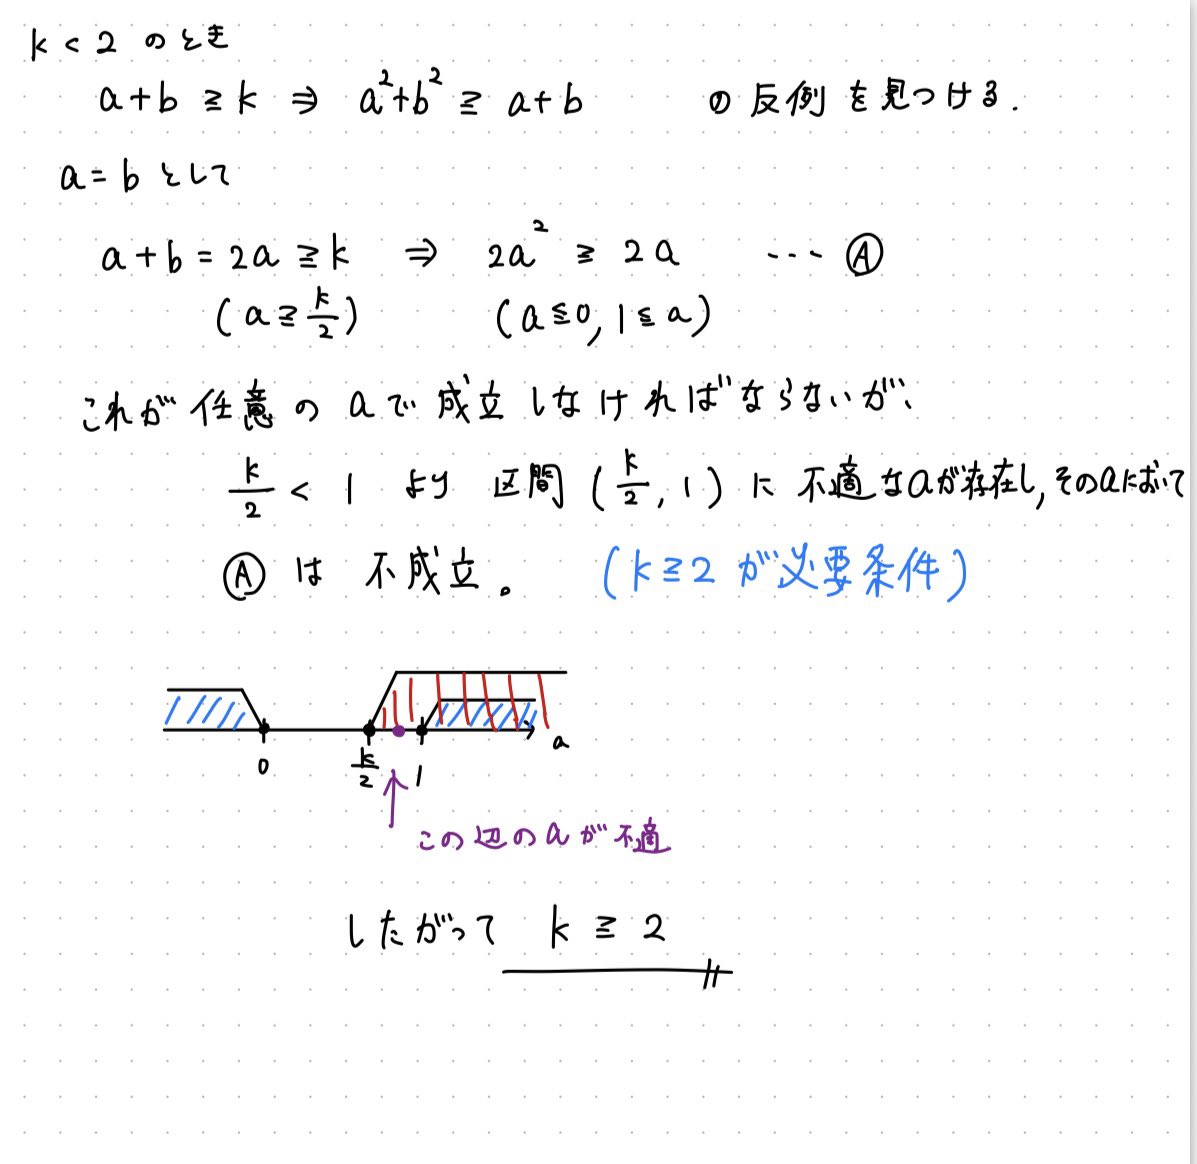 k < 2 のとき
a+b ≧ k ⇒ a²+b² ≧ a+b の反例を見つける.
a = b として
a+b = 2a ≧ k ⇒ 2a² ≧ 2a ... Ⓐ
(a ≧ k/2) (a ≦ 0, 1 ≦ a)
これが任意の a で成立しなければならないが、
k/2 < 1 より 区間 (k/2, 1) に不適なaが存在し, そのaにおいて
Ⓐ は 不成立。 (k ≧ 2 が必要条件)
0 k/2 1 a
この辺のaが不適
したがって k ≧ 2